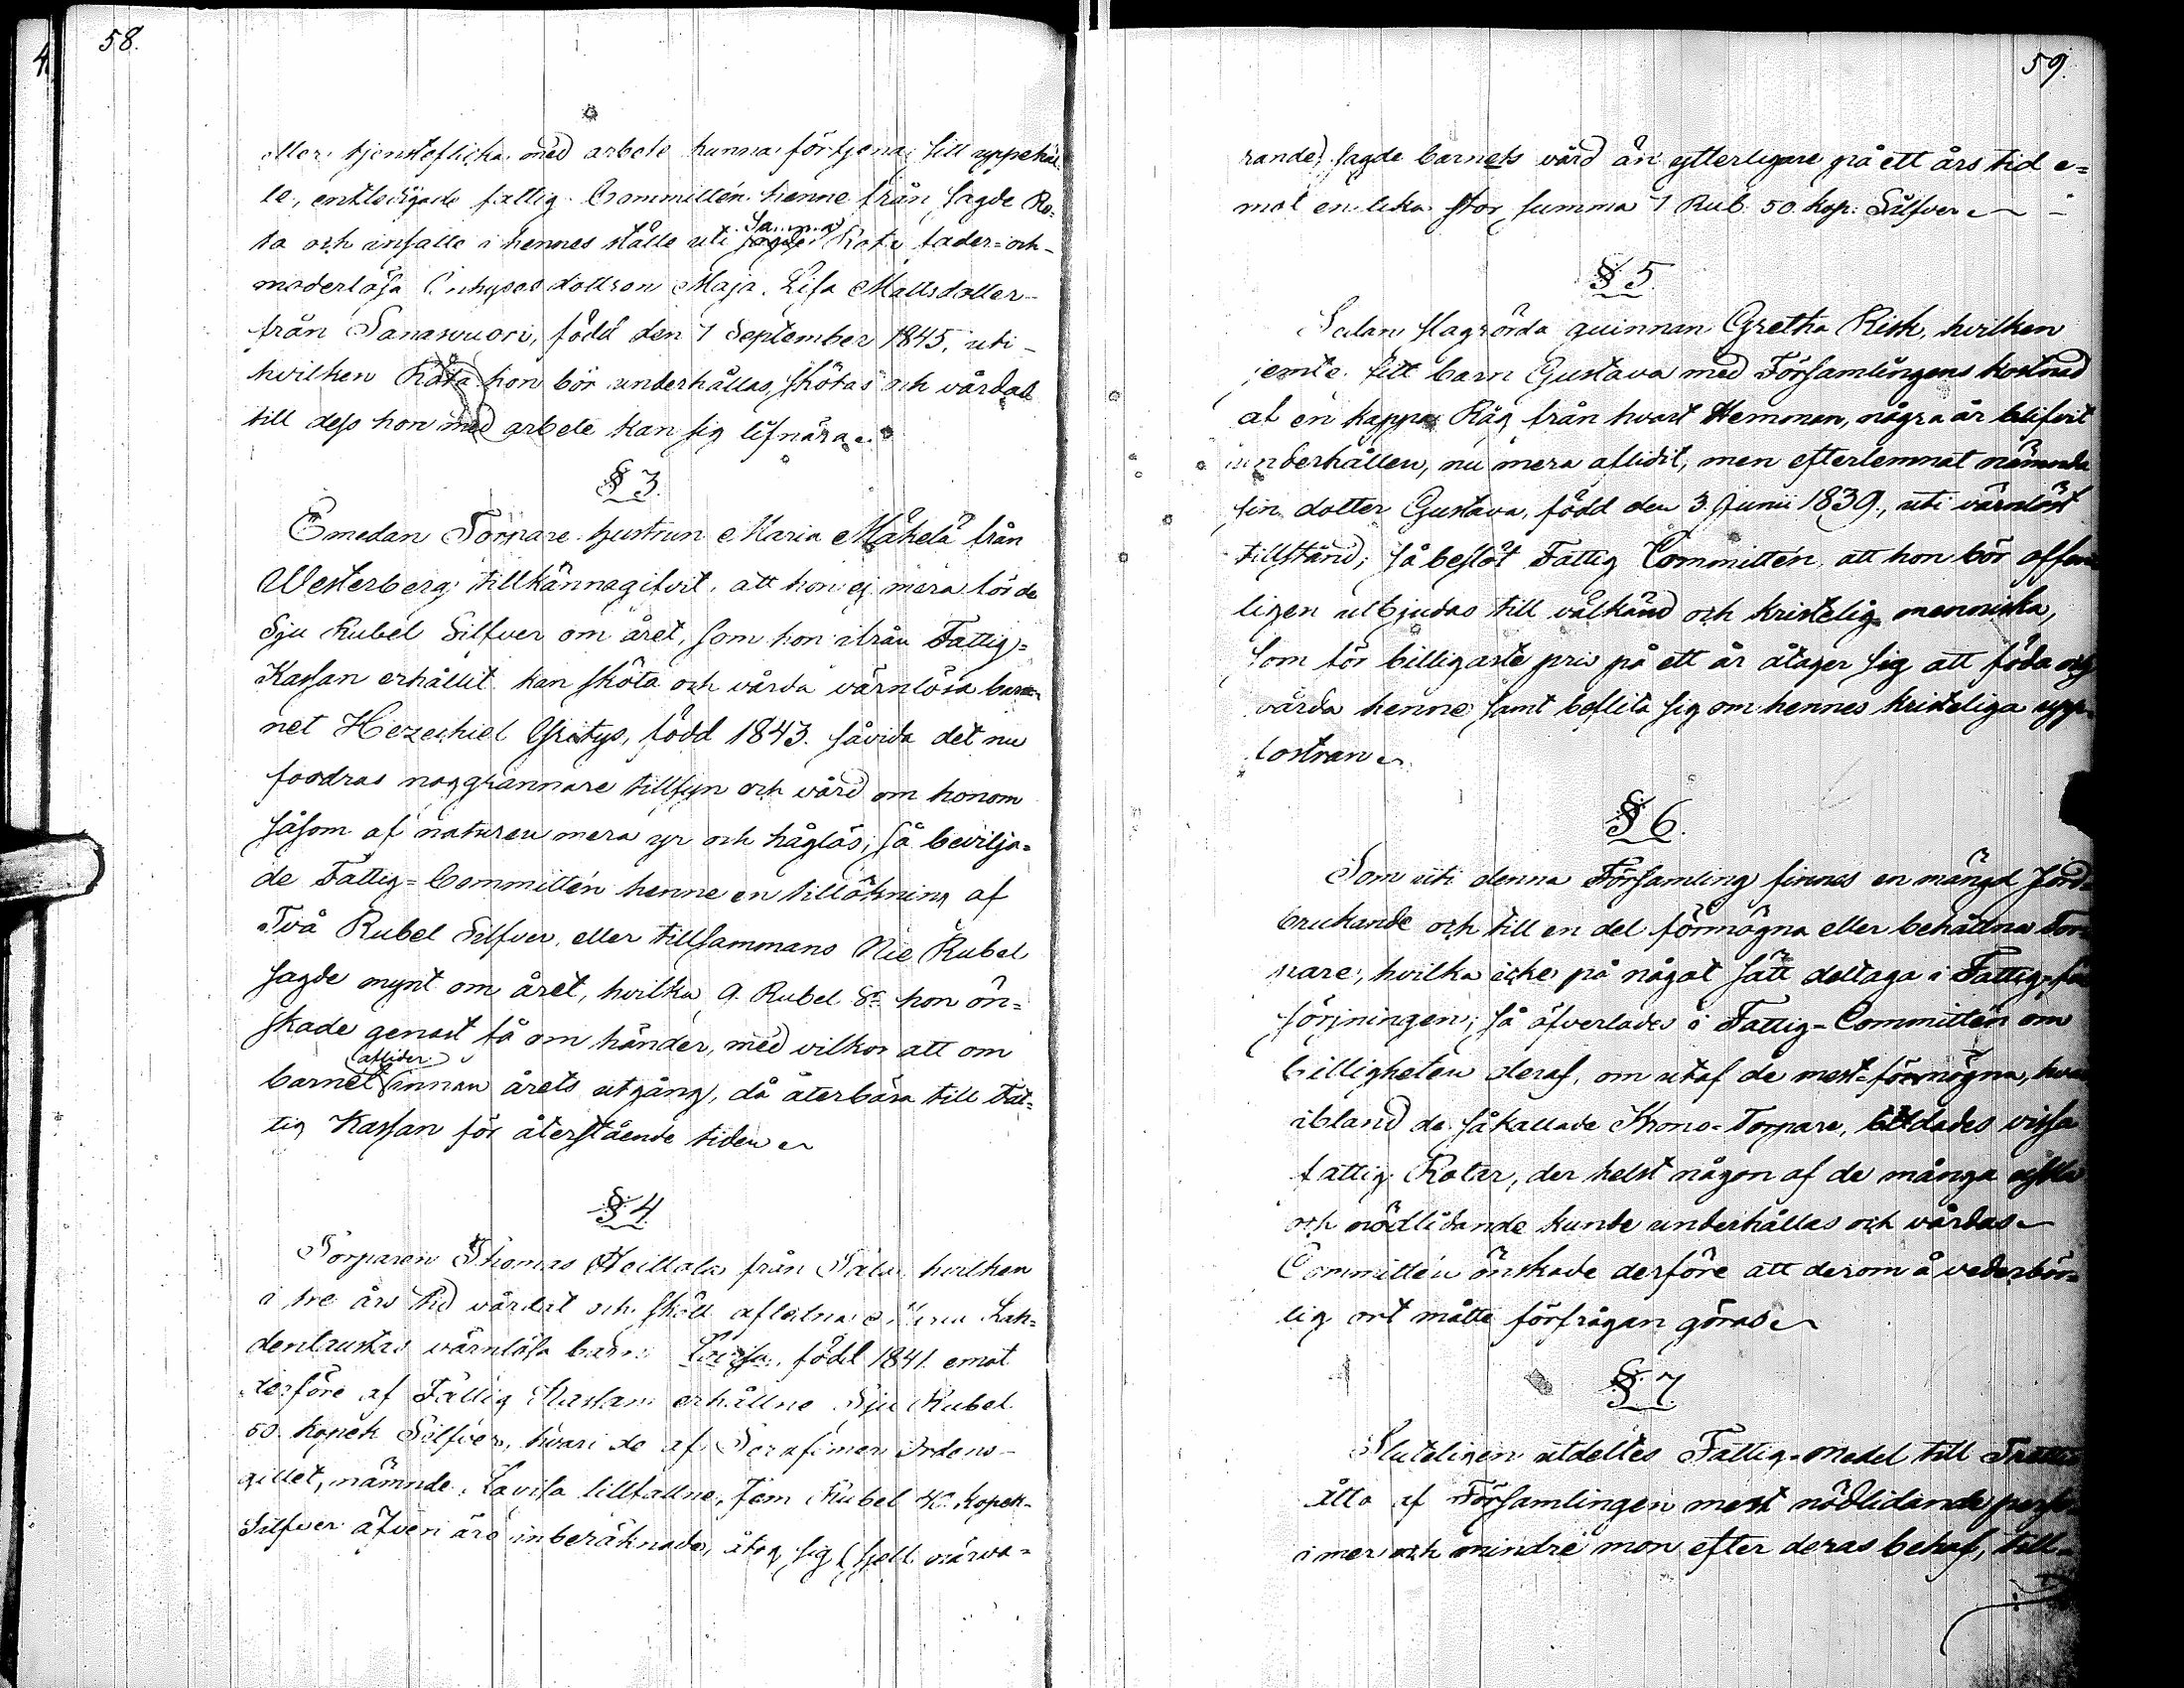 58.
eller tjensteflicka med arbete kunna förtjena sitt uppehäl¬
le, entledigade fattig Committén henne från sagde Ro¬
samma
ta och insatte i hennes ställe uti sagde Rota fader- och
moderlösa Inhyses dottren Maja Lisa Mattsdotter
från Sanasvuori, född den 7 September 1845, uti
hvilken Rota hon bör underhållas, skötas och vårdas
till dess hon med arbete kan sig lifnära.
§ 3.
Emedan Torpare hustrun Maria Mäkelä från
Westerberg tillkännagifvit, att hon ej mera för de
Sju Rubel Silfver om året, som hon ifrån Fattig=
Kassan erhållit kan sköta och vårda värnlösa bar¬
net Hezechiel Gritys, född 1843. såvida det nu
fordras noggrannare tillsyn och vård om honom
såsom af naturen mera yr och håglös; så bevilja=
de Fattig=Committén henne en tillökning af
Två Rubel Silfver, eller tillsammans Nie Rubel
sagde mynt om året, hvilka 9 Rubel Sr hon ön=
skade genast få om händer, med vilkor att om
aflider
barnet innan årets utgång, då återbära till Fat=
tig Kassan för återstående tiden
§ 4
Torparen Thomas Heittala från hvilken
i tre års tid vårdat och skött aflidna Lah=
denlaustas värnlösa barn Lovisa, född 1841 emot
derföre af Fattig Kassan erhållne Sju Rubel
50 kopek Silfver, hvari de af Serafimer Ordens-
gillet, nämnde Lovisa tillfallne, Fem Rubel 40 Kopek
Silfver äfven äro inberäknade, åtog sig sjelf närva=
59.
rande, sagde barnets vård än ytterligare på ett års tid e=
mot en lika stor summa 7 Rub. 50. kop. Silfver
§ 5.
Sedan slagrörda quinnan Gretha Risk, hvilken
jemte sitt barn Gustava med Församlingens kostnad
af en kappe Råg från hvart Hemman, några år blifvit
underhållen, nu mera aflidit, men efterlemnat nämnda
sin dotter Gustava, född den 3 Junii 1839., uti värnlöst
tillstånd; så beslöt Fattig Committén, att hon bör offent
ligen utbjudas till välkänd och kristelig menniska,
som för billigaste pris på ett år åtager sig att föda och
vårda henne samt beflita sig om hennes kristeliga upp=
fostran
§ 6.
Som uti denna Församling finnes en mängd jord=
brukande och till en del förmögna eller behållna Tor=
pare, hvilka icke på något sätt deltaga i Fattig=för
sörjningen; så öfverlades i Fattig=Committén om
billigheten deraf, om utaf de mest förmögna, hvar
ibland de såkallade Krono=Torpare, bildades vissa
fattig Rotar, der helst någon af de många
och nödlidande kunde underhållas och vårdas
Committén önskade derföre att derom å vederbör=
lig ort måtte förfrågan göras
§ 7.
Sluteligen utdeltes Fattig=medel till
åtta af Församlingen mest nödlidande
i mer och mindre mon efter deras behof, till=